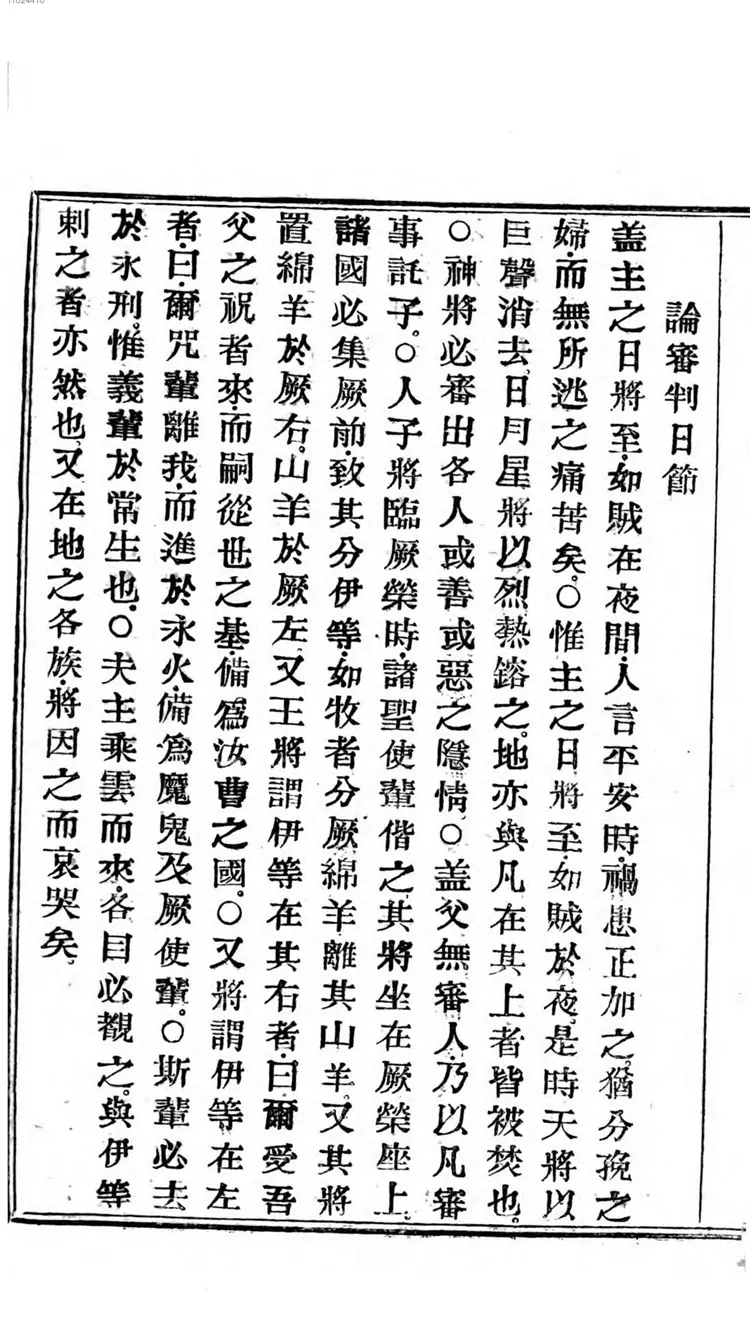 11024410
論審判日節
盖主之日將至．如賊在夜間．人言平安時．禍患正加之．猶分㝃之
婦．而無所逃之痛苦矣。○惟主之日將至．如賊於夜．是時天將以
巨聲消去．日月星將以烈熱鎔之．地亦與凡在其上者皆被焚也。
○神將必審出各人或善或惡之隱情。○盖父無審人．乃以凡審
事託子。○人子將臨厥榮時．諸聖使輩偕之．其將坐在厥榮座上。
諸國必集厥前．致其分伊等．如牧者分厥綿羊離其山羊。又其將
置綿羊於厥右。山羊於厥左。又王將謂伊等在其右者．曰爾愛吾
父之祝者來．而嗣從世之基．備爲汝曹之國。○又將謂伊等在左
者．曰．爾咒輩離我．而進於永火．備爲魔鬼及厥使輩。○斯輩必去
於永刑。惟義輩於常生也。○夫主乘雲而來．各目必覩之．與伊等
刺之者亦然也．又在地之各族．將因之而哀哭矣。